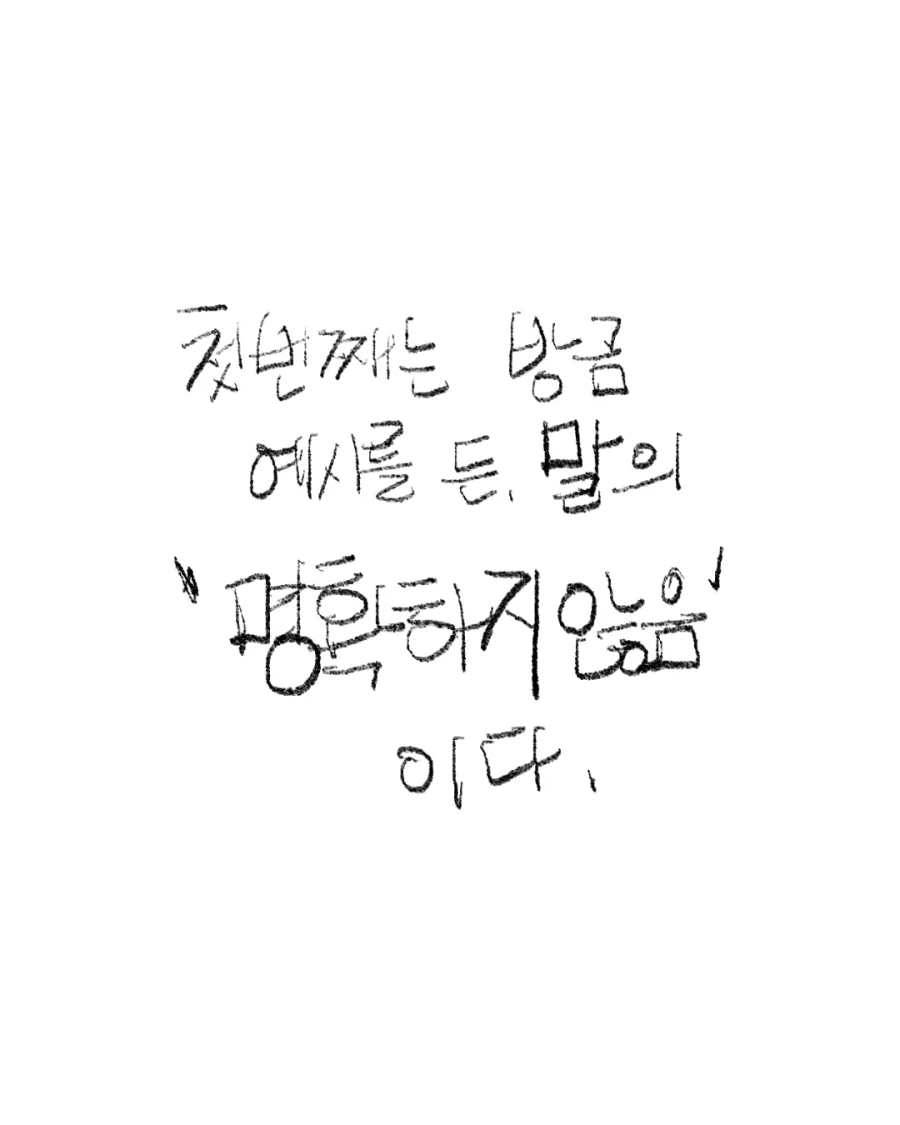 첫번째는 방금
예시를 든, 말의
"명확하지 않음'
이다.